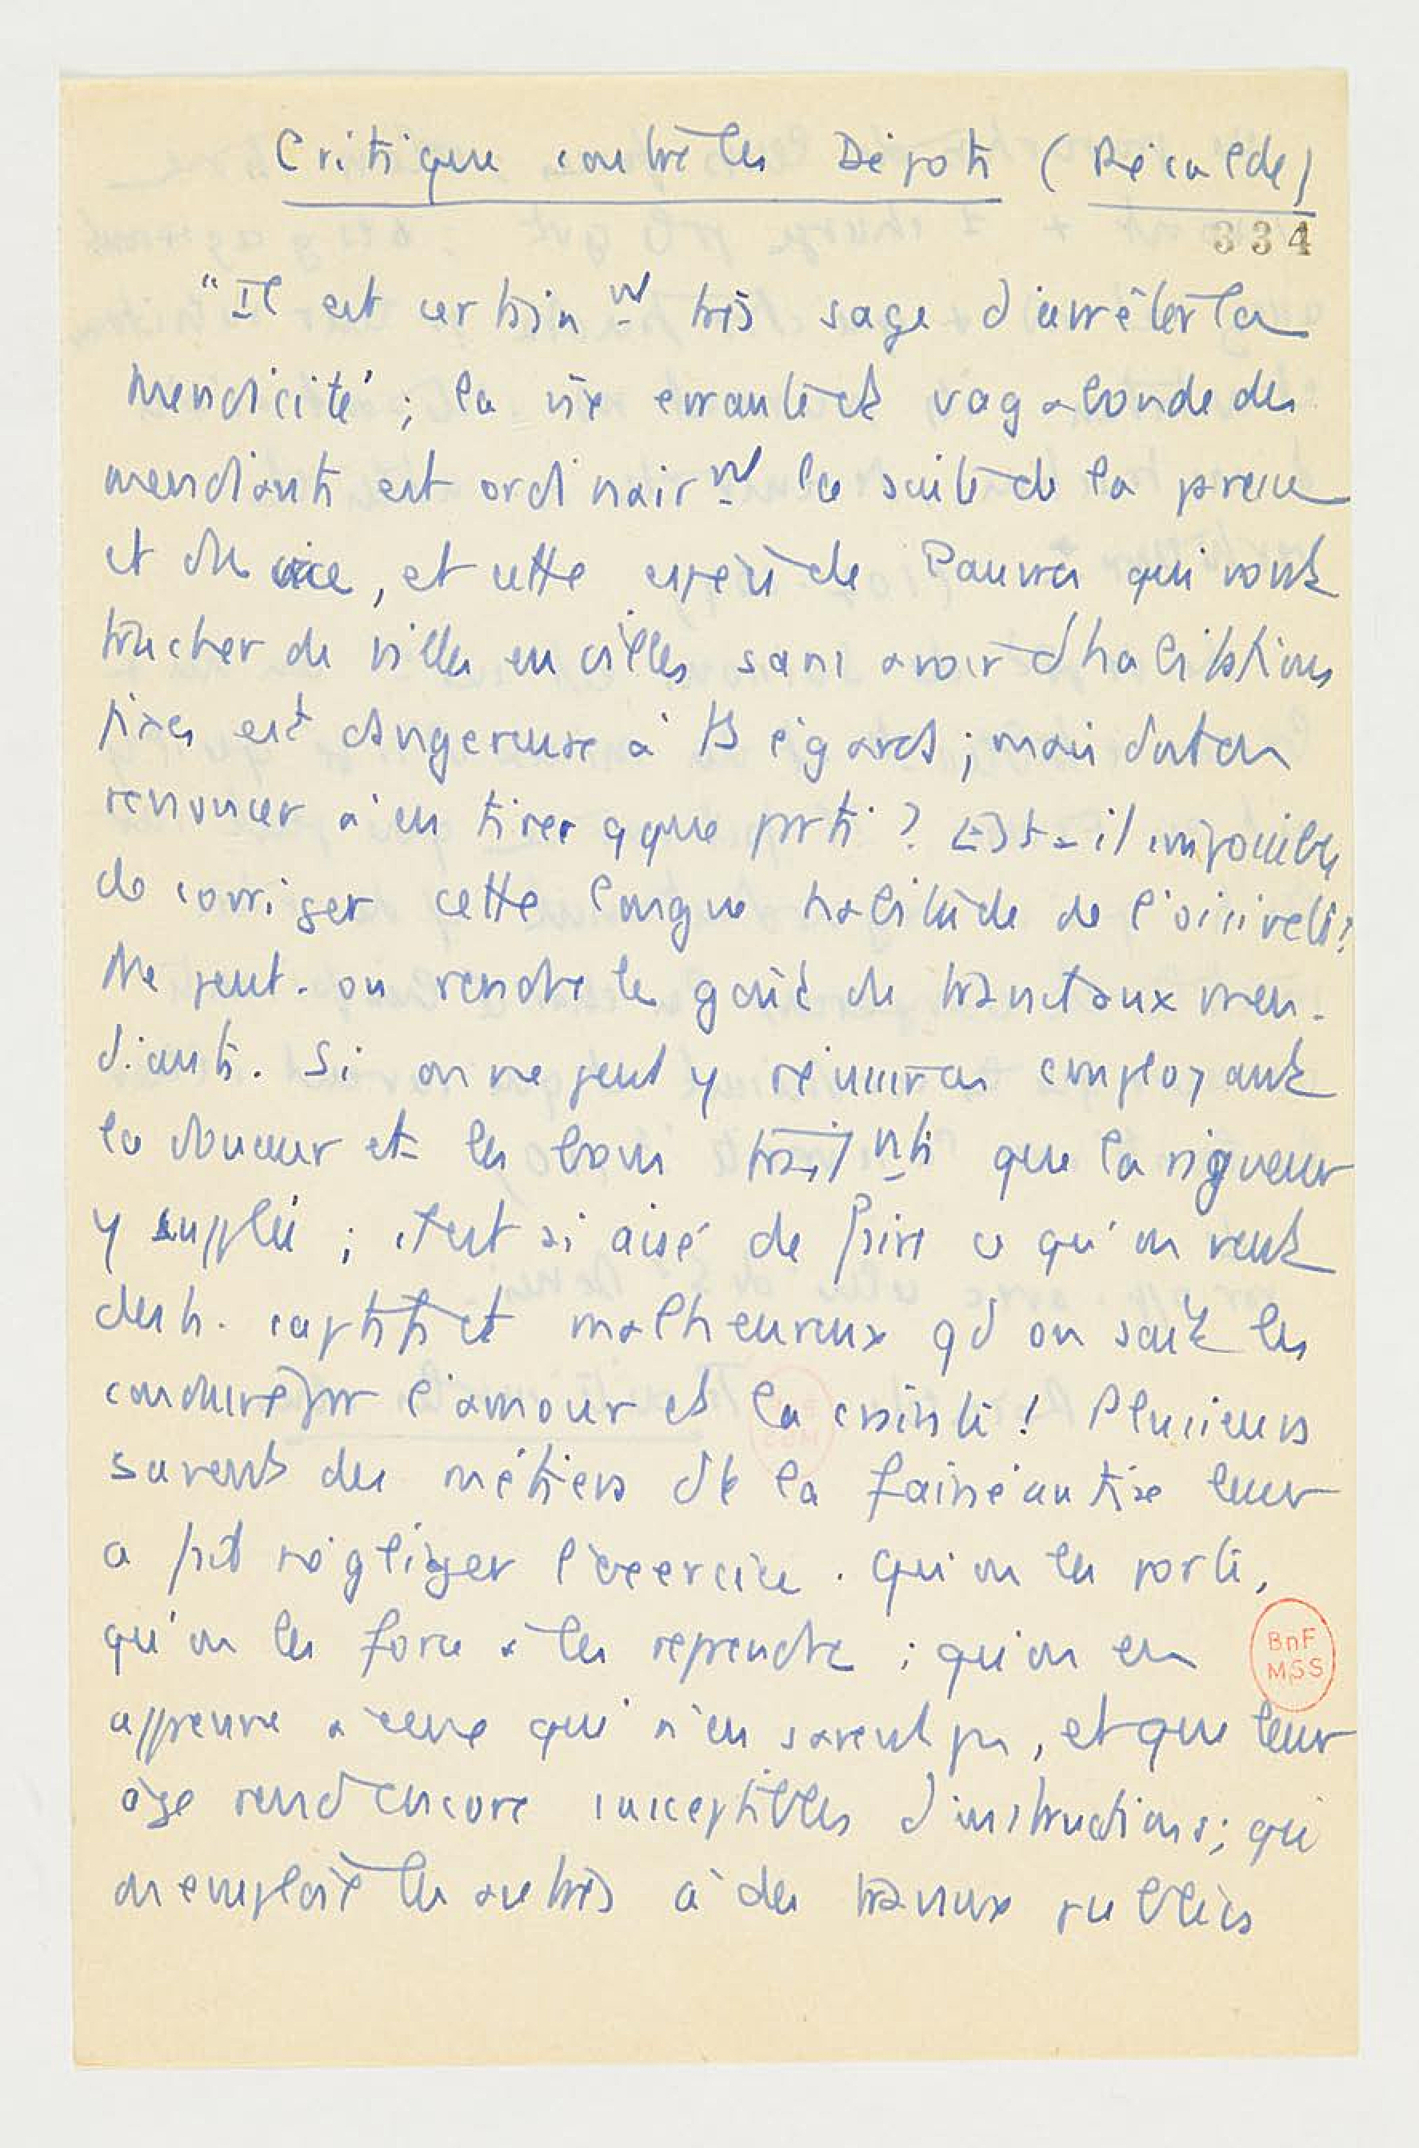 Critique contre les Dépôts (Récalde)
334
"Il est certain nt très sage d'arrêter la
mendicité ; la vie errante et vagabonde des
mendiants est ordinair nt la suite de la
et du vice, et cette espèce de Pauvres qui vont
trucher de villes en villes sans avoir d'habitations
fixes est dangereuse à ts égards ; mais doit on
renoncer à en tirer qque parti ? Est-il impossible
de corriger cette longue habitude de l'oisiveté ?
Ne peut-on rendre le goût du travail aux men-
diants. Si on ne peut y réussir en employant
la douceur et les bons trait nts que la rigueur
y supplée ; il est si aisé de faire ce qu'on veut
des h. captifs et malheureux qd on sait les
conduire par l'amour et la crainte ! Plusieurs
savent des métiers dt la fainéantise leur
a fait négliger l'exercice. Qu'on les porte,
qu'on les force à les reprendre ; qu'on en
apprenne à ceux qui n'en savent pas, et que leur
âge rend encore susceptibles d'instructions ; qu'
on emploie les autres à des travaux publics
BnF
MSS